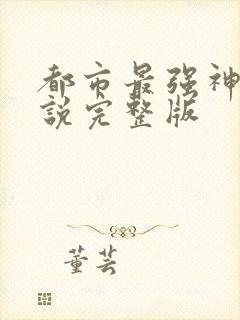 都市最强神
說完整版
董芸